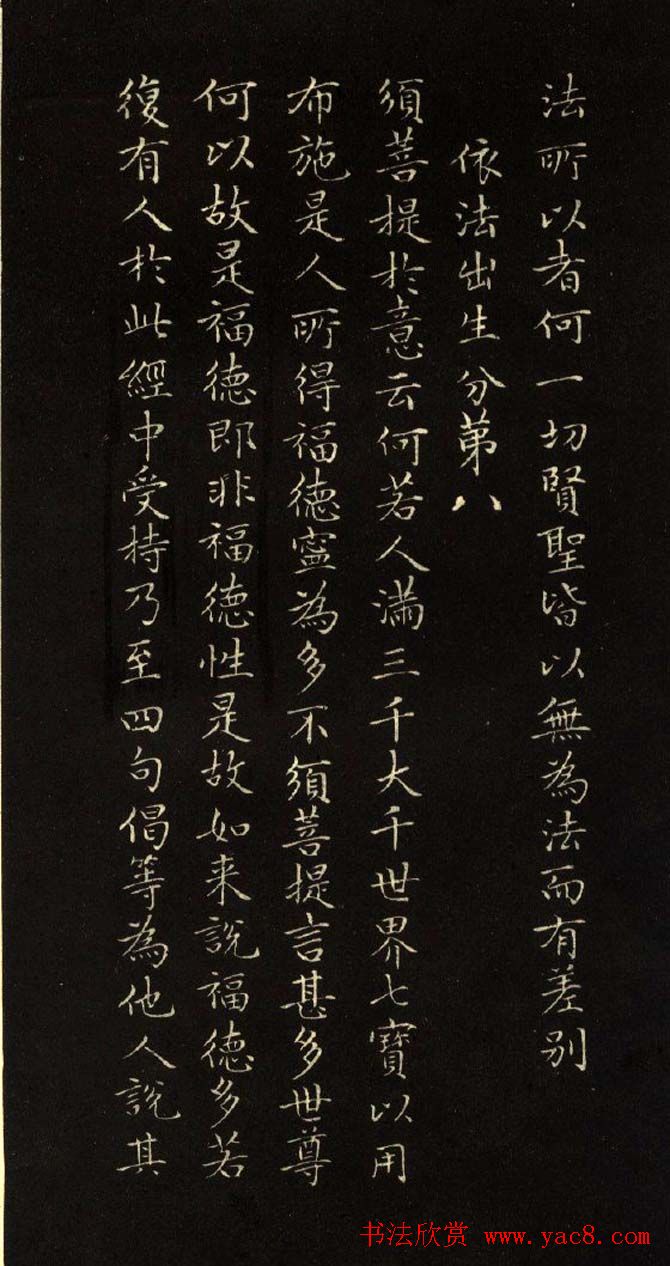 法所以者何一切賢聖皆以無為法而有差别
依法出生分第八
須菩提於意云何若人滿三千大千世界七寶以用
布施是人所得福德寧為多不須菩提言甚多世尊
何以故是福德即非福德性是故如来說福德多若
復有人於此經中受持乃至四句偈等為他人說其
书法欣赏 www.yac8.com